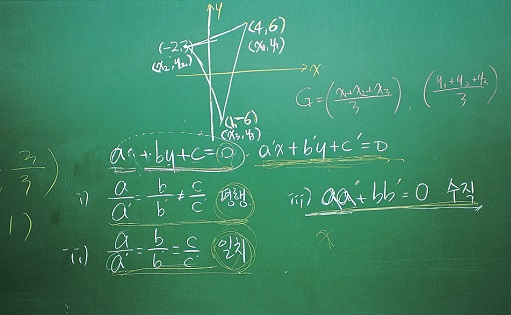 y
(4,6)
(x₁,y₁)
(-2,3)
(x₂,y₂)
x
(1,-6)
(x₃,y₃)
G=(x₁+x₂+x₃/3), (y₁+y₂+y₃/3)
ax+by+c=0, a'x+b'y+c'=0
i) a/a'=b/b'≠c/c' 평행
ii) a/a'=b/b'=c/c' 일치
iii) aa'+bb'=0 수직
x
3
1)